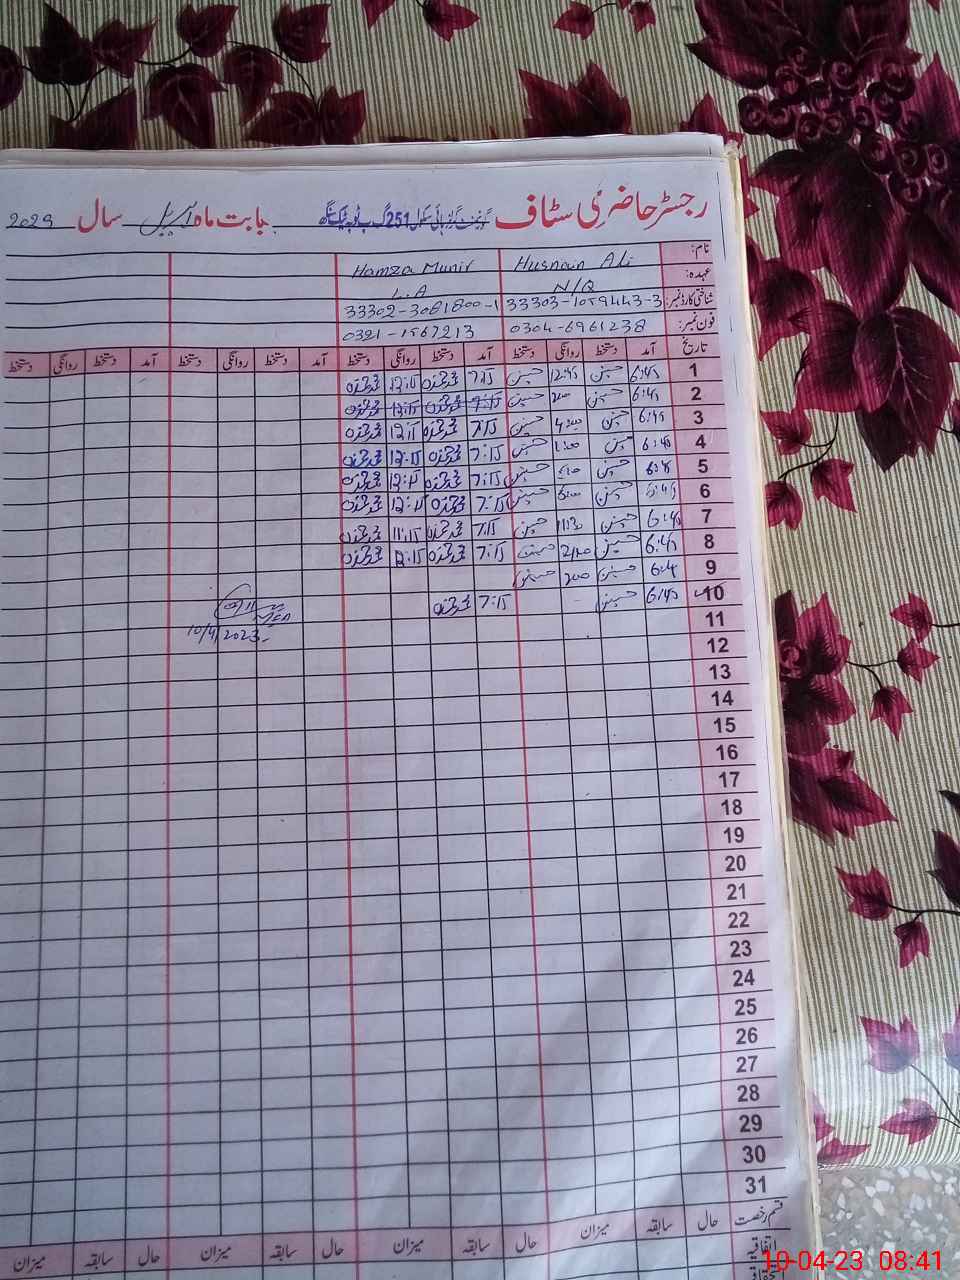 رجسٹر حاضری سٹاف گورنمنٹ گرلز ہائی سکول 251 گ ب ٹوبہ ٹیک سنگھ بابت ماہ اپریل سال 2023
نام: Husnain Ali Hamza Munir
عہدہ: N/Q L.A
شناختی کارڈ نمبر: 33303-1059443-3 33302-3081800-1
فون نمبر: 0304-6961238 0321-1567213
تاریخ آمد دستخط روانگی دستخط آمد دستخط روانگی دستخط آمد دستخط روانگی دستخط آمد دستخط روانگی دستخط
1 6:45 حسنین 12:45 حسنین 7:15 محمد حمزہ 12:15 محمد حمزہ
2 6:45 حسنین 2:00 حسنین 7:15 محمد حمزہ 12:15 محمد حمزہ
3 6:45 حسنین 4:00 حسنین 7:15 محمد حمزہ 12:15 محمد حمزہ
4 6:45 حسنین 1:00 حسنین 7:15 محمد حمزہ 12:15 محمد حمزہ
5 حسنین حسنین 7:15 محمد حمزہ 12:15 محمد حمزہ
6 6:45 حسنین حسنین 7:15 محمد حمزہ 12:15 محمد حمزہ
7 6:45 حسنین 11:30 حسنین 7:15 محمد حمزہ 11:15 محمد حمزہ
8 6:45 حسنین 2:00 حسنین 7:15 محمد حمزہ 12:15 محمد حمزہ
9 6:4 حسنین 2:00 حسنین
10 6:45 حسنین 7:15 محمد حمزہ
11 10/4/2023
12
13
14
15
16
17
18
19
20
21
22
23
24
25
26
27
28
29
30
31
قسم رخصت حال سابقہ میزان حال سابقہ میزان حال سابقہ میزان حال سابقہ میزان
اتفاقیہ
10-04-23 08:41